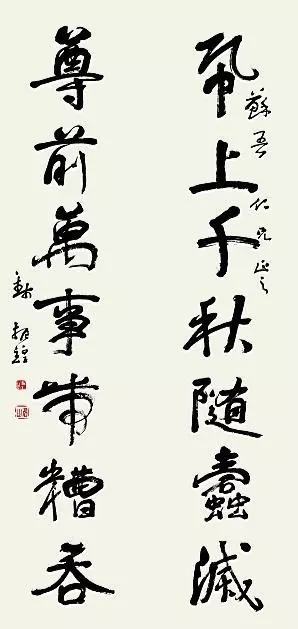 帋上千秋隨蠹滅
蘇吾仁兄正之
尊前萬事帶糟吞